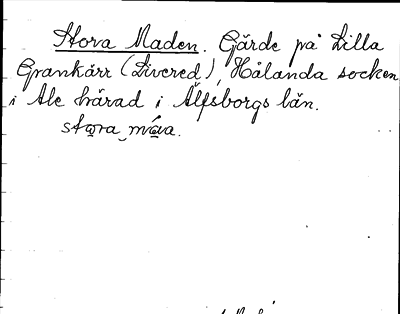 Stora Maden. Gärde på Lilla
Grankärr (Livered), Hålanda socken
i Ale härad i Älfsborgs län.
stora máa.